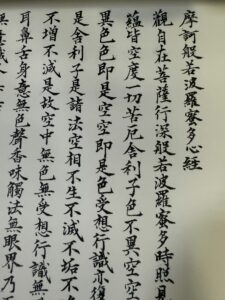 摩訶般若波羅蜜多心經
觀自在菩薩行深般若波羅蜜多時照見
蘊皆空度一切苦厄舍利子色不異空空
異色色即是空空即是色受想行識亦復
是舍利子是諸法空相不生不滅不垢不
不增不減是故空中無色無受想行識無
耳鼻舌身意無色聲香味觸法無眼界乃